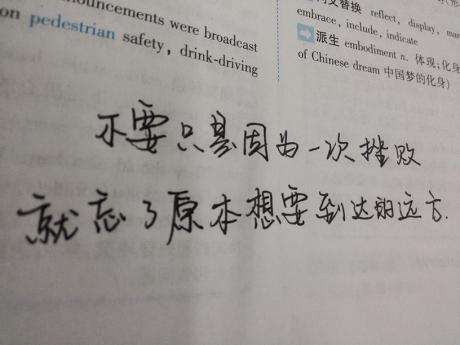 nouncements were broadcast
on pedestrian safety, drink-driving
替换 reflect, display,
embrace, include, indicate
派生 embodiment n. 体现;化身
of Chinese dream 中国梦的化身)
不要只是因为一次挫败
就忘了原本想要到达的远方.